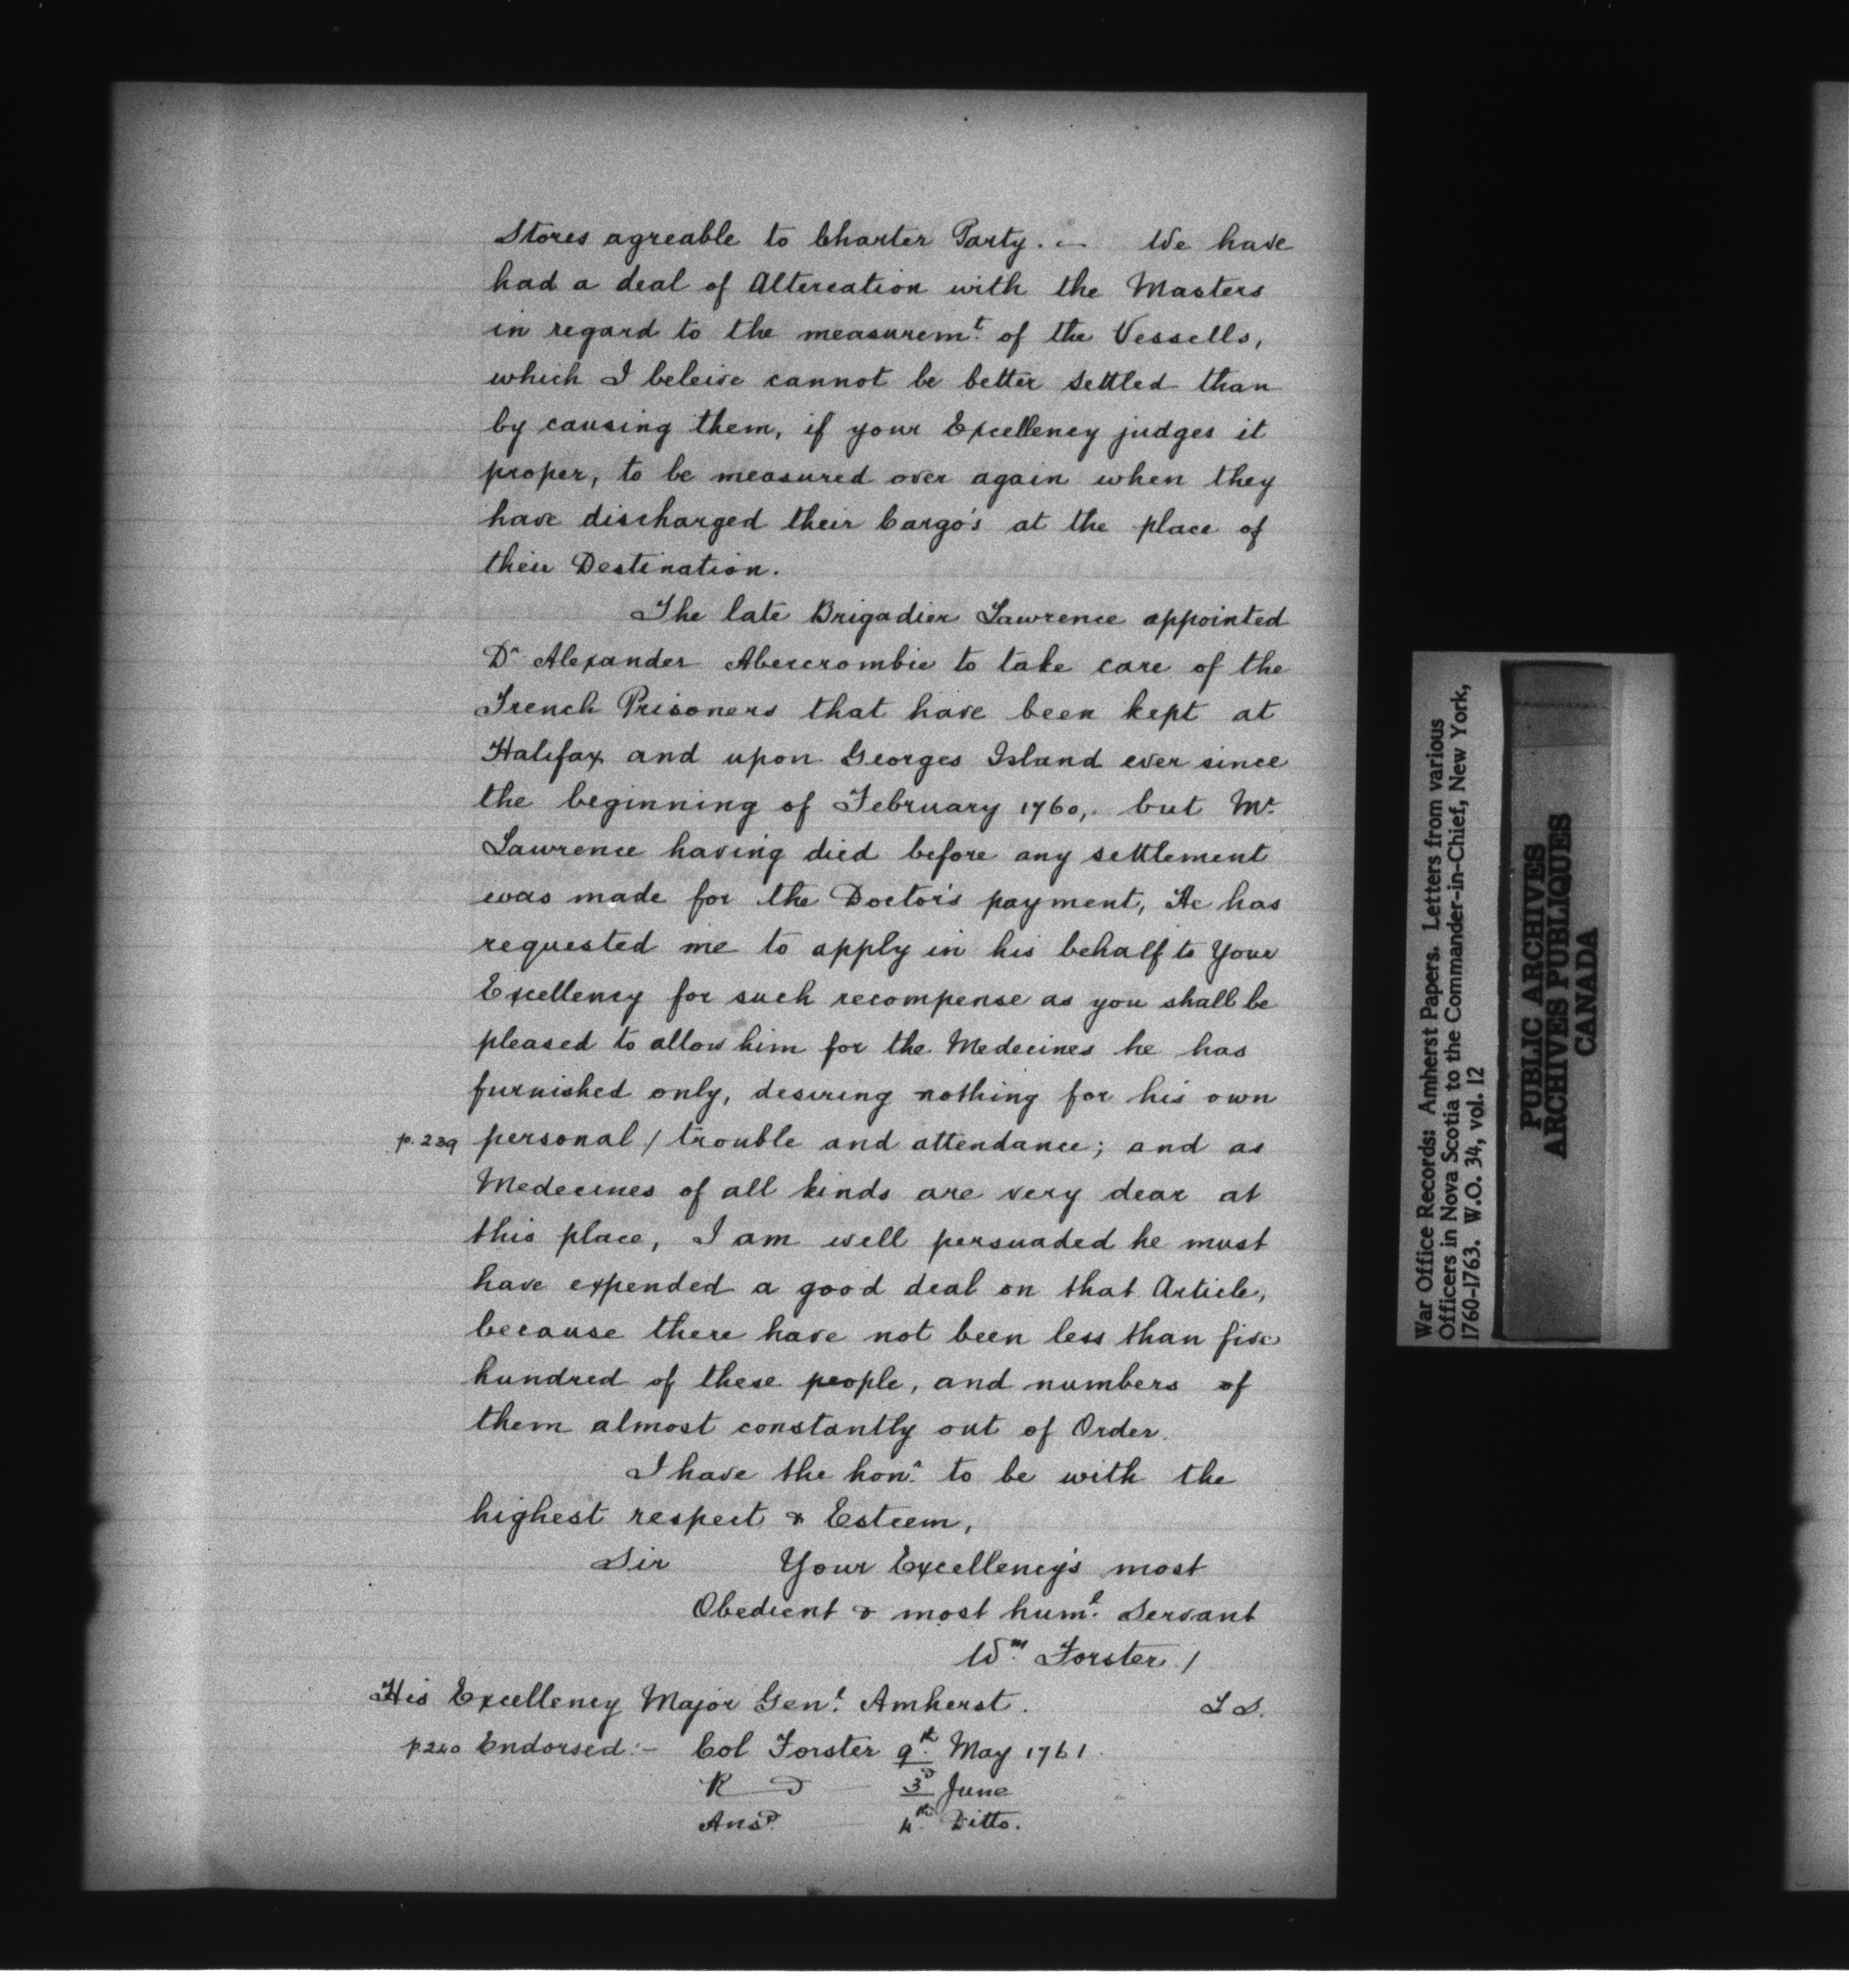 Stores agreable to Charter Party. — We have
had a deal of Altercation with the Masters
in regard to the measurem.t of the Vessells,
which I beleive cannot be better settled than
by causing them, if your Excellency judges it
proper, to be measured over again when they
have discharged their Cargo's at the place of
their Destination.
The late Brigadier Lawrence appointed
Dr Alexander Abercrombie to take care of the
French Prisoners that have been kept at
Halifax and upon Georges Island ever since
the beginning of February 1760, but Mr.
Lawrence having died before any settlement
was made for the Doctor's payment, He has
requested me to apply in his behalf to Your
Excellency for such recompense as you shall be
pleased to allow him for the Medecines he has
furnished only, desiring nothing for his own
p. 239 personal / trouble and attendance; and as
Medecines of all kinds are very dear at
this place, I am well persuaded he must
have expended a good deal on that Article,
because there have not been less than five
hundred of these people, and numbers of
them almost constantly out of Order.
I have the hon.r to be with the
highest respect & Esteem,
Sir Your Excellency's most
Obedient & most hum.l Servant
W.m Forster /
His Excellency Major Gen.l Amherst. L S.
p.240 Endorsed:- Col Forster 9.th May 1761.
R — D — 3d June
Ansd. — 4.th Ditto.
War Office Records: Amherst Papers. Letters from various
Officers in Nova Scotia to the Commander-in-Chief, New York,
1760-1763. W.O. 34, vol. 12
PUBLIC ARCHIVES
ARCHIVES PUBLIQUES
CANADA